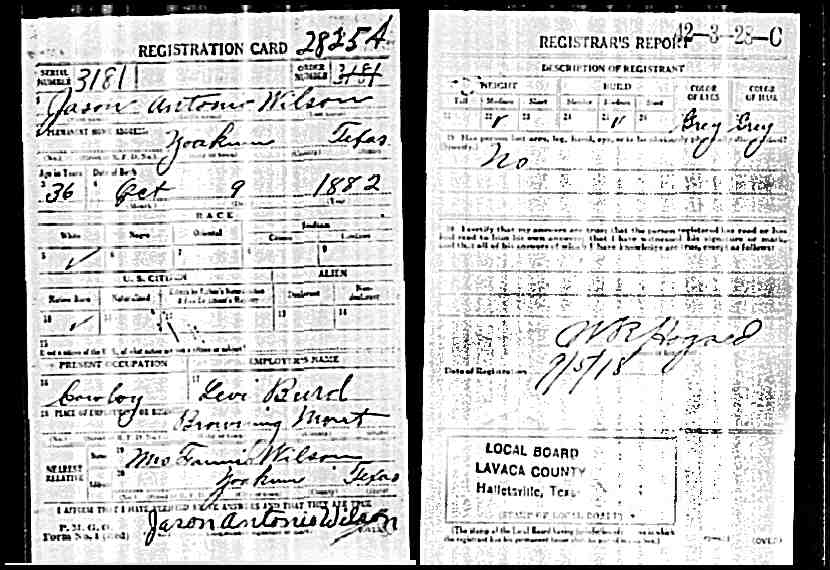 REGISTRATION CARD 2825A
SERIAL NUMBER 3181
ORDER NUMBER 3181
Jason Antonio Wilson
PERMANENT HOME ADDRESS
Yoakum Texas
Age in Years Date of Birth
36 Oct 9 1882
RACE
White Negro Oriental Indian
Citizen
5 ✓ 6 7 8 9
U. S. CITIZEN ALIEN
Native Born Naturalized Declarant Non-declarant
10 ✓ 11 12 13 14
15
PRESENT OCCUPATION EMPLOYER'S NAME
16 Cowboy 17 Levi Burd
18 PLACE OF EMPLOYMENT OR
Browning Mont
NEAREST RELATIVE
Name 19 Mrs Fannie Wilson
Address 20 Yoakum Texas
I AFFIRM THAT I HAVE VERIFIED ABOVE ANSWERS AND THAT THEY ARE TRUE
P. M. G. O.
Form No. 1 (Red)
Jason Antonio Wilson
42-3-28-C
REGISTRAR'S REPORT
DESCRIPTION OF REGISTRANT
HEIGHT BUILD COLOR OF EYES COLOR OF HAIR
Tall Medium Short Slender Medium Stout
21 22 ✓ 23 24 25 ✓ 26 Grey Grey
29 Has person lost arm, leg, hand, eye, or is he obviously physically disqualified?
(Specify.) No
30 I certify that my answers are true; that the person registered has read or has
had read to him his own answers; that I have witnessed his signature or mark,
and that all of his answers of which I have knowledge are true, except as follows:
Date of Registration
LOCAL BOARD
LAVACA COUNTY
Halletsville, Texas
(STAMP OF LOCAL BOARD)
(The stamp of the Local Board having jurisdiction of the area in which
the registrant has his permanent home shall be placed in this box.)
(OVER)